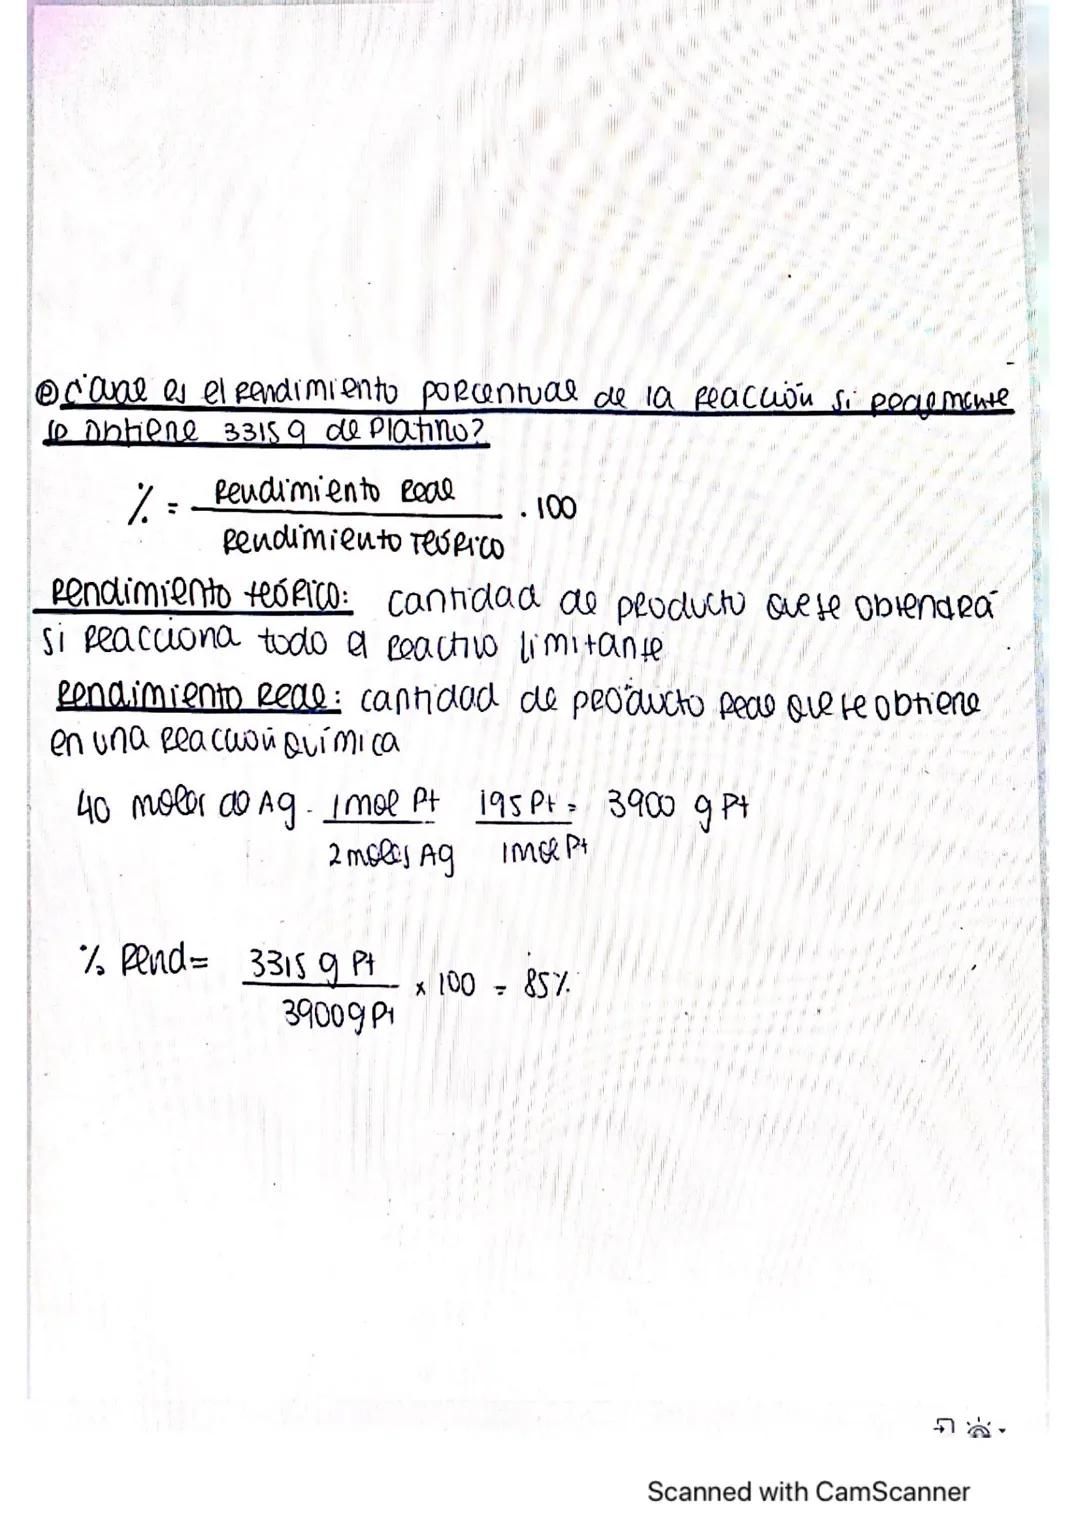 e ¿cual es el Rendimiento porcentual de la Reacción si Realmente
se obtiene 3315 g de Platino?
% = Rendimiento Real / Rendimiento TeóRico . 100
Rendimiento teóRico: cantidad de producto que se obtendRá
si Reacciona todo el Reactivo limitante
Rendimiento Real: cantidad de producto Real que se obtiene
en una Reacción Química
40 moles de Ag . 1 mol Pt / 2 moles Ag 195 Pt / 1 mol Pt = 3900 g Pt
% Rend = 3315 g Pt / 3900 g Pt x 100 = 85%
Scanned with CamScanner